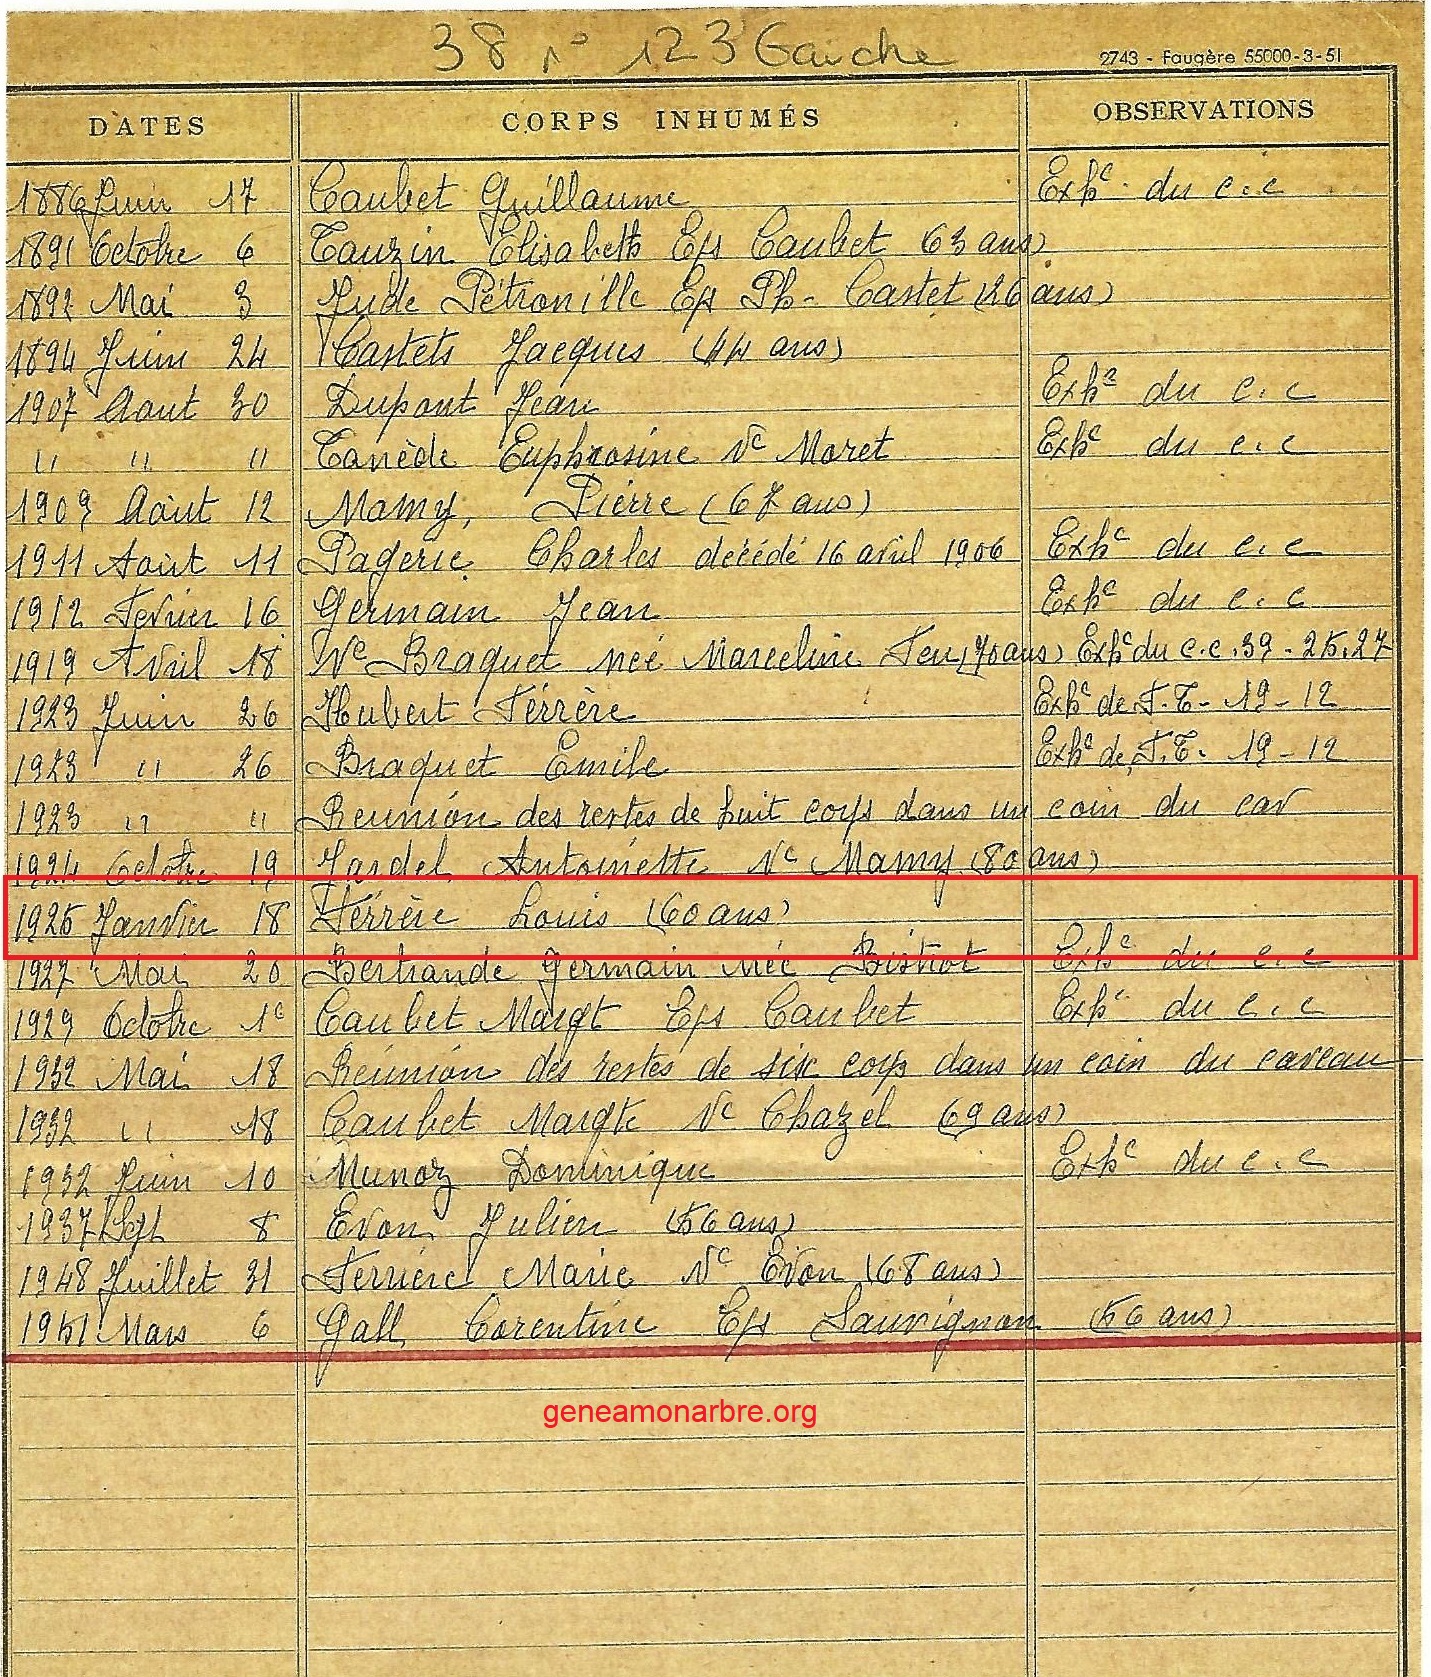 38 n° 123 Gauche
2743 - Faugère 55000-3-51
DATES CORPS INHUMÉS OBSERVATIONS
1886 Juin 17 Caubet Guillaume Exhᶜ. du c.c
1891 Octobre 6 Tauzin Elisabeth Eps Caubet (63 ans)
1892 Mai 3 Jude Pétronille Eps Ph- Castet (26 ans)
1894 Juin 24 Castets Jacques (44 ans)
1907 Aout 30 Dupont Jean Exhᶜ du c.c
" " " Tanède Euphrosine Vᶜ Moret Exhᶜ du c.c
1909 Août 12 Mamy, Pierre (67 ans)
1911 Août 11 Pagerie Charles décédé 16 avril 1906 Exhᶜ du c.c
1912 Fevrier 16 Germain Jean Exhᶜ du c.c
1919 Avril 18 Vᶜ Braquet neé Marceline Feu (70 ans) Exhᶜ du c.c. 39 - 25.27
1923 Juin 26 Hubert Férrère Exhᶜ de T.T- 19-12
1923 " 26 Braquet Emile Exhᶜ de T.T. 19-12
1923 " " Reunion des restes de huit corps dans un coin du cav
1924 Octobre 19 Jardel Antoinette Vᶜ Mamy (80 ans)
1925 Janvier 18 Férrère Louis (60 ans)
1927 Mai 20 Bertrande Germain neé Bistrot Exhᶜ du c.c
1929 Octobre 1ᶜ Caubet Margt Eps Caubet Exhᶜ du c.c
1932 Mai 18 Réunion des restes de six corps dans un coin du caveau
1932 " 18 Caubet Margte Vᶜ Chazel (69 ans)
1932 Juin 10 Munoz Dominique Exhᶜ du c.c
1937 Sept 8 Evon Julien (56 ans)
1948 Juillet 31 Ferrière Marie Vᶜ Evon (68 ans)
1951 Mars 6 Gall Corentine Eps Sauvignon (56 ans)
geneamonarbre.org